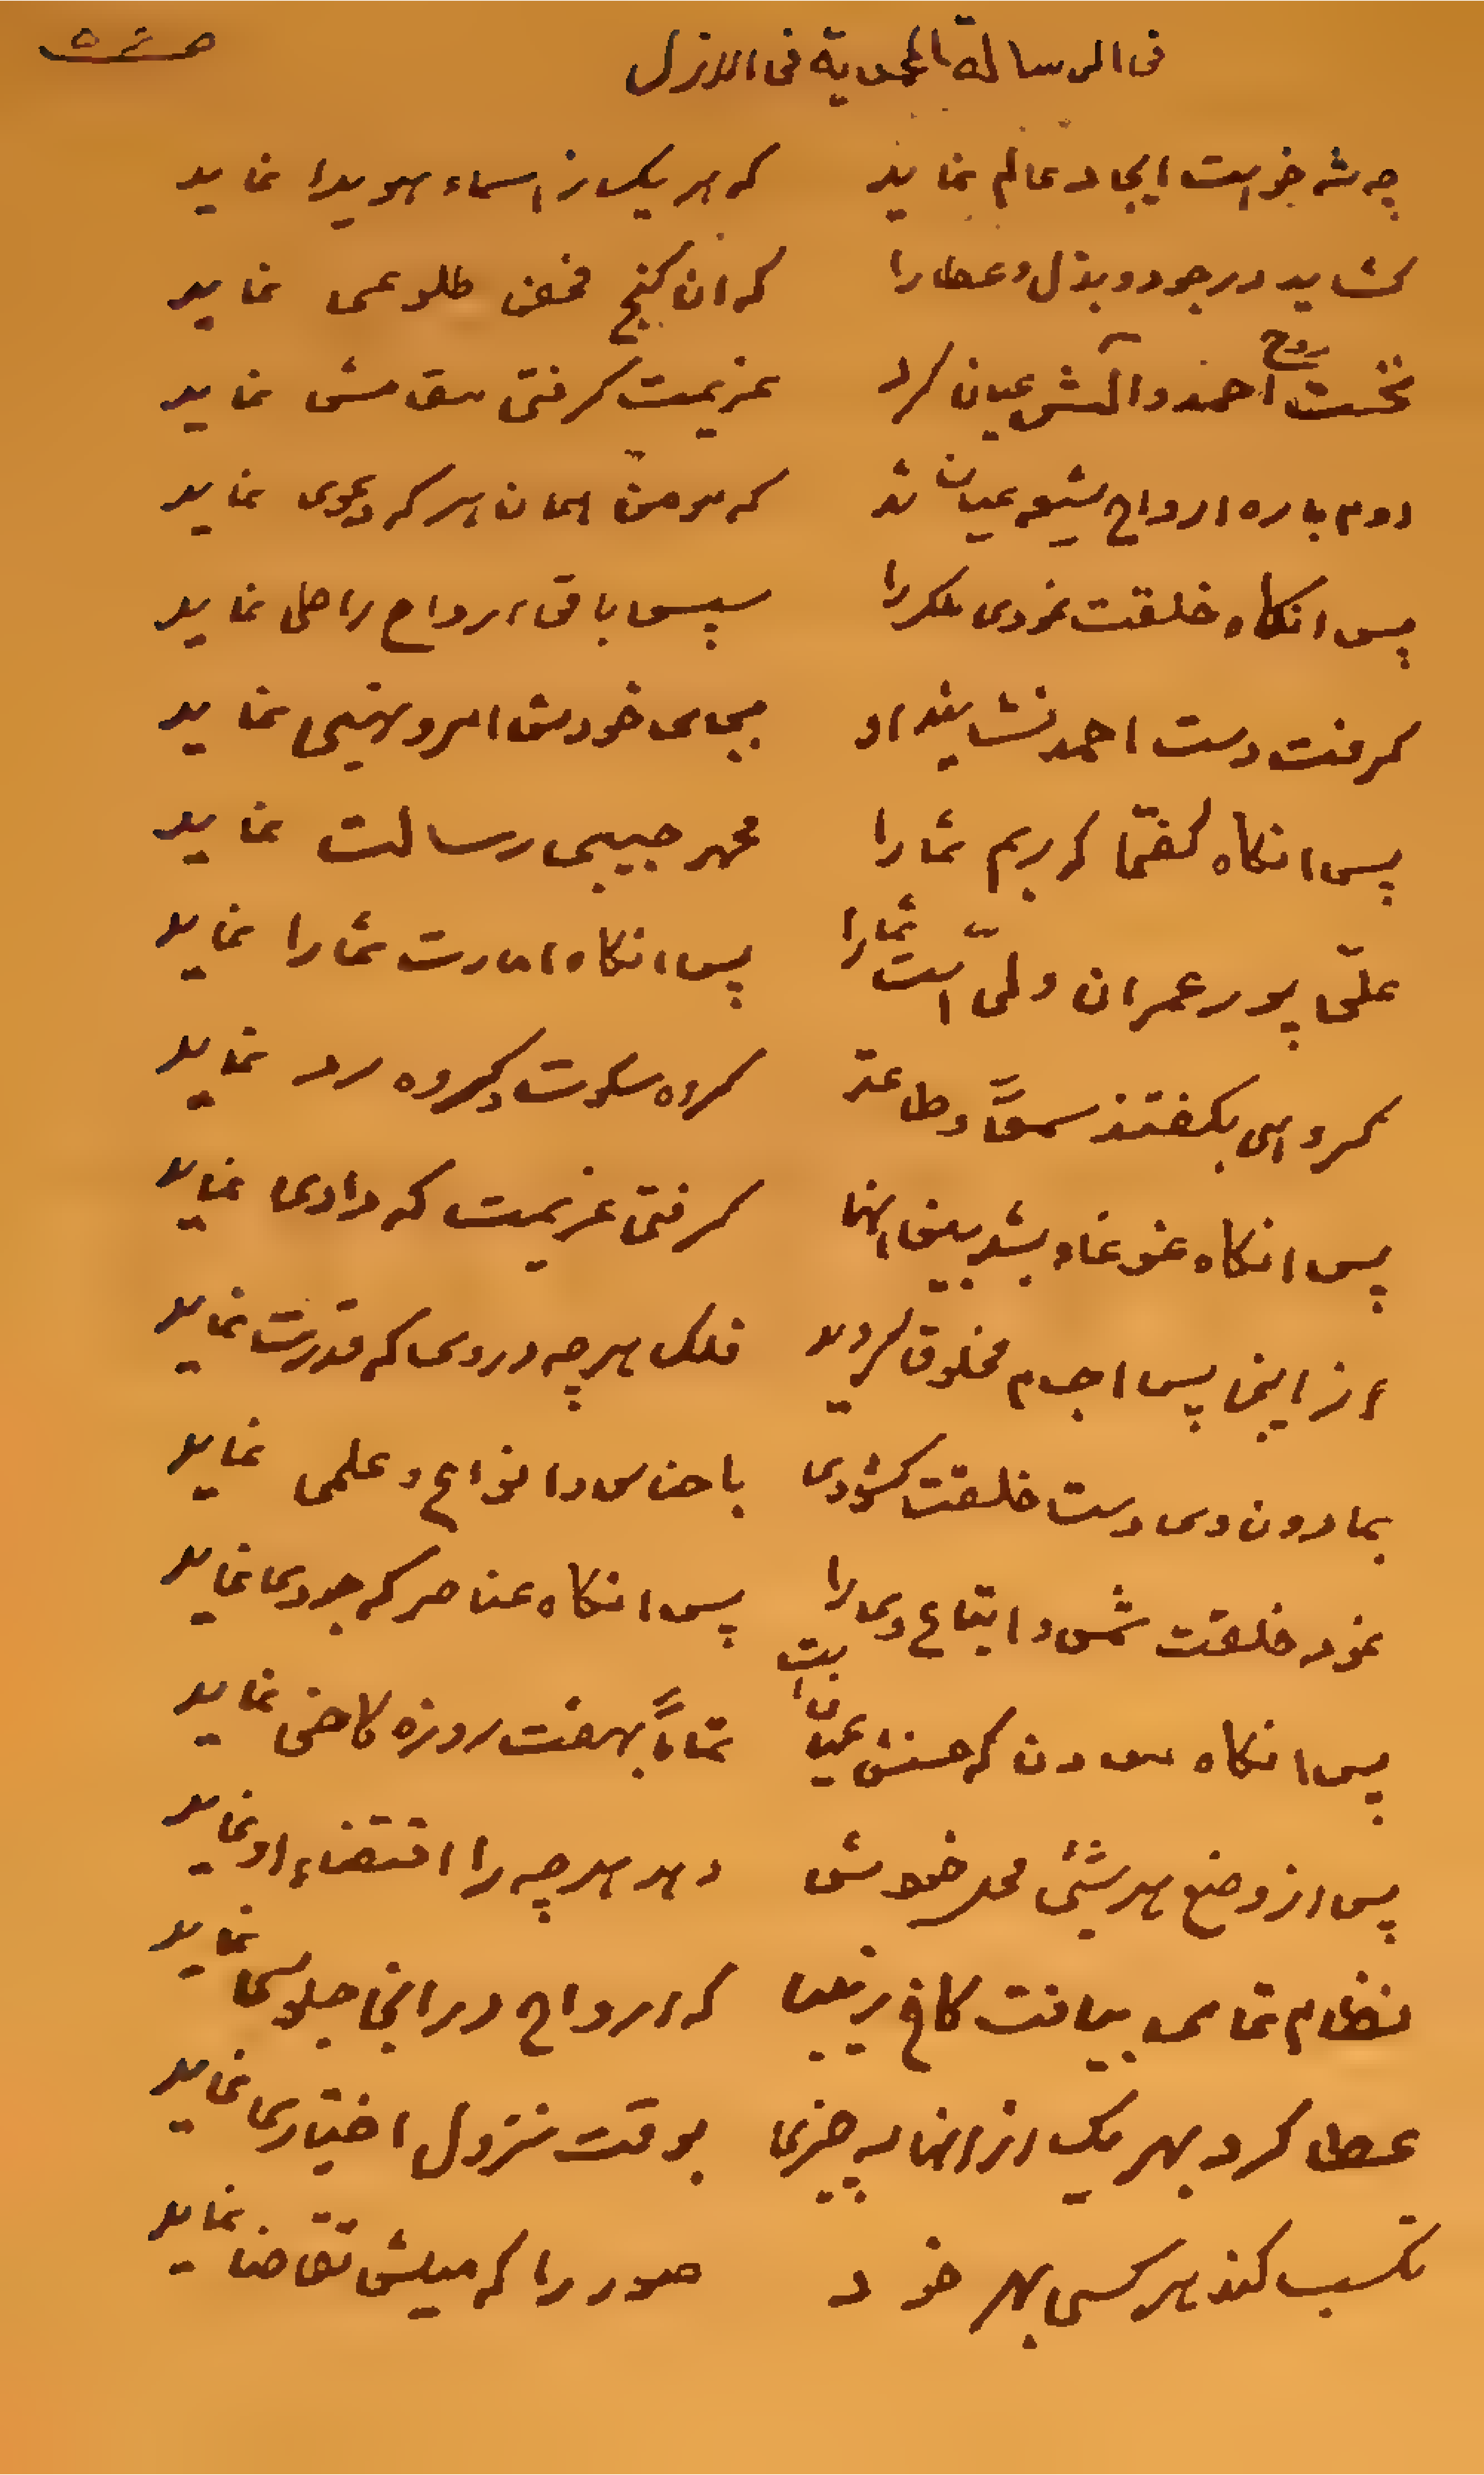 فی الرسالة المحمدیة فی الازل
چه شه خواست ایجاد عالم نماید که هر یک ز اسماء هویدا نماید
کشاید در جود و بذل و عطا را که ان کنج مخفی طلوعی نماید
نخست روح احمد و الش عیان کرد عزیمت کرفتی نماید
دوم باره ارواح شیعه عیان شد که مومن همان هر که دعوی نماید
پس انکاه خلقت نمودی ملک را سپس باقی ارواح را حلی نماید
کرفت دست احمد نشایند او بجای خودش امر و نهیی نماید
پس انکاه کفتا که ربم شما را بمهر حبیبی رسالت نماید
علی پور عمران ولی است شما را پس انکاه امارت شما را نماید
کروهی بکفتند سمعا و طاعة کروه سکوت کروه رد نماید
پس انکاه غوغاء بشد بین انها کرفتی عزیمت که دادی نماید
از اینجا پس اجسام مخلوق کردید فلک هر چه در وی که قدرت نماید
بمادون وی دست خلقت کشودی باجناس و انواع و علمی نماید
نمود خلقت شمس و اتباع وی را پس انکاه عناصر که جودی نماید
پس انکاه معادن که حسنش عیان است تماما بهفت روزه کاخی نماید
پس از وضع هر شیئی محل خودش دهد هر چه را اقتضاء او نماید
نظام تمامی بیافت کاخ زیبا که ارواح در انجا جلوسی نماید
عطا کرد بهر یک از انها سه چیزی بوقت نزول اختیاری نماید
تکسب کند هر کسی بهر خود صور را که میلش تقاضا نماید